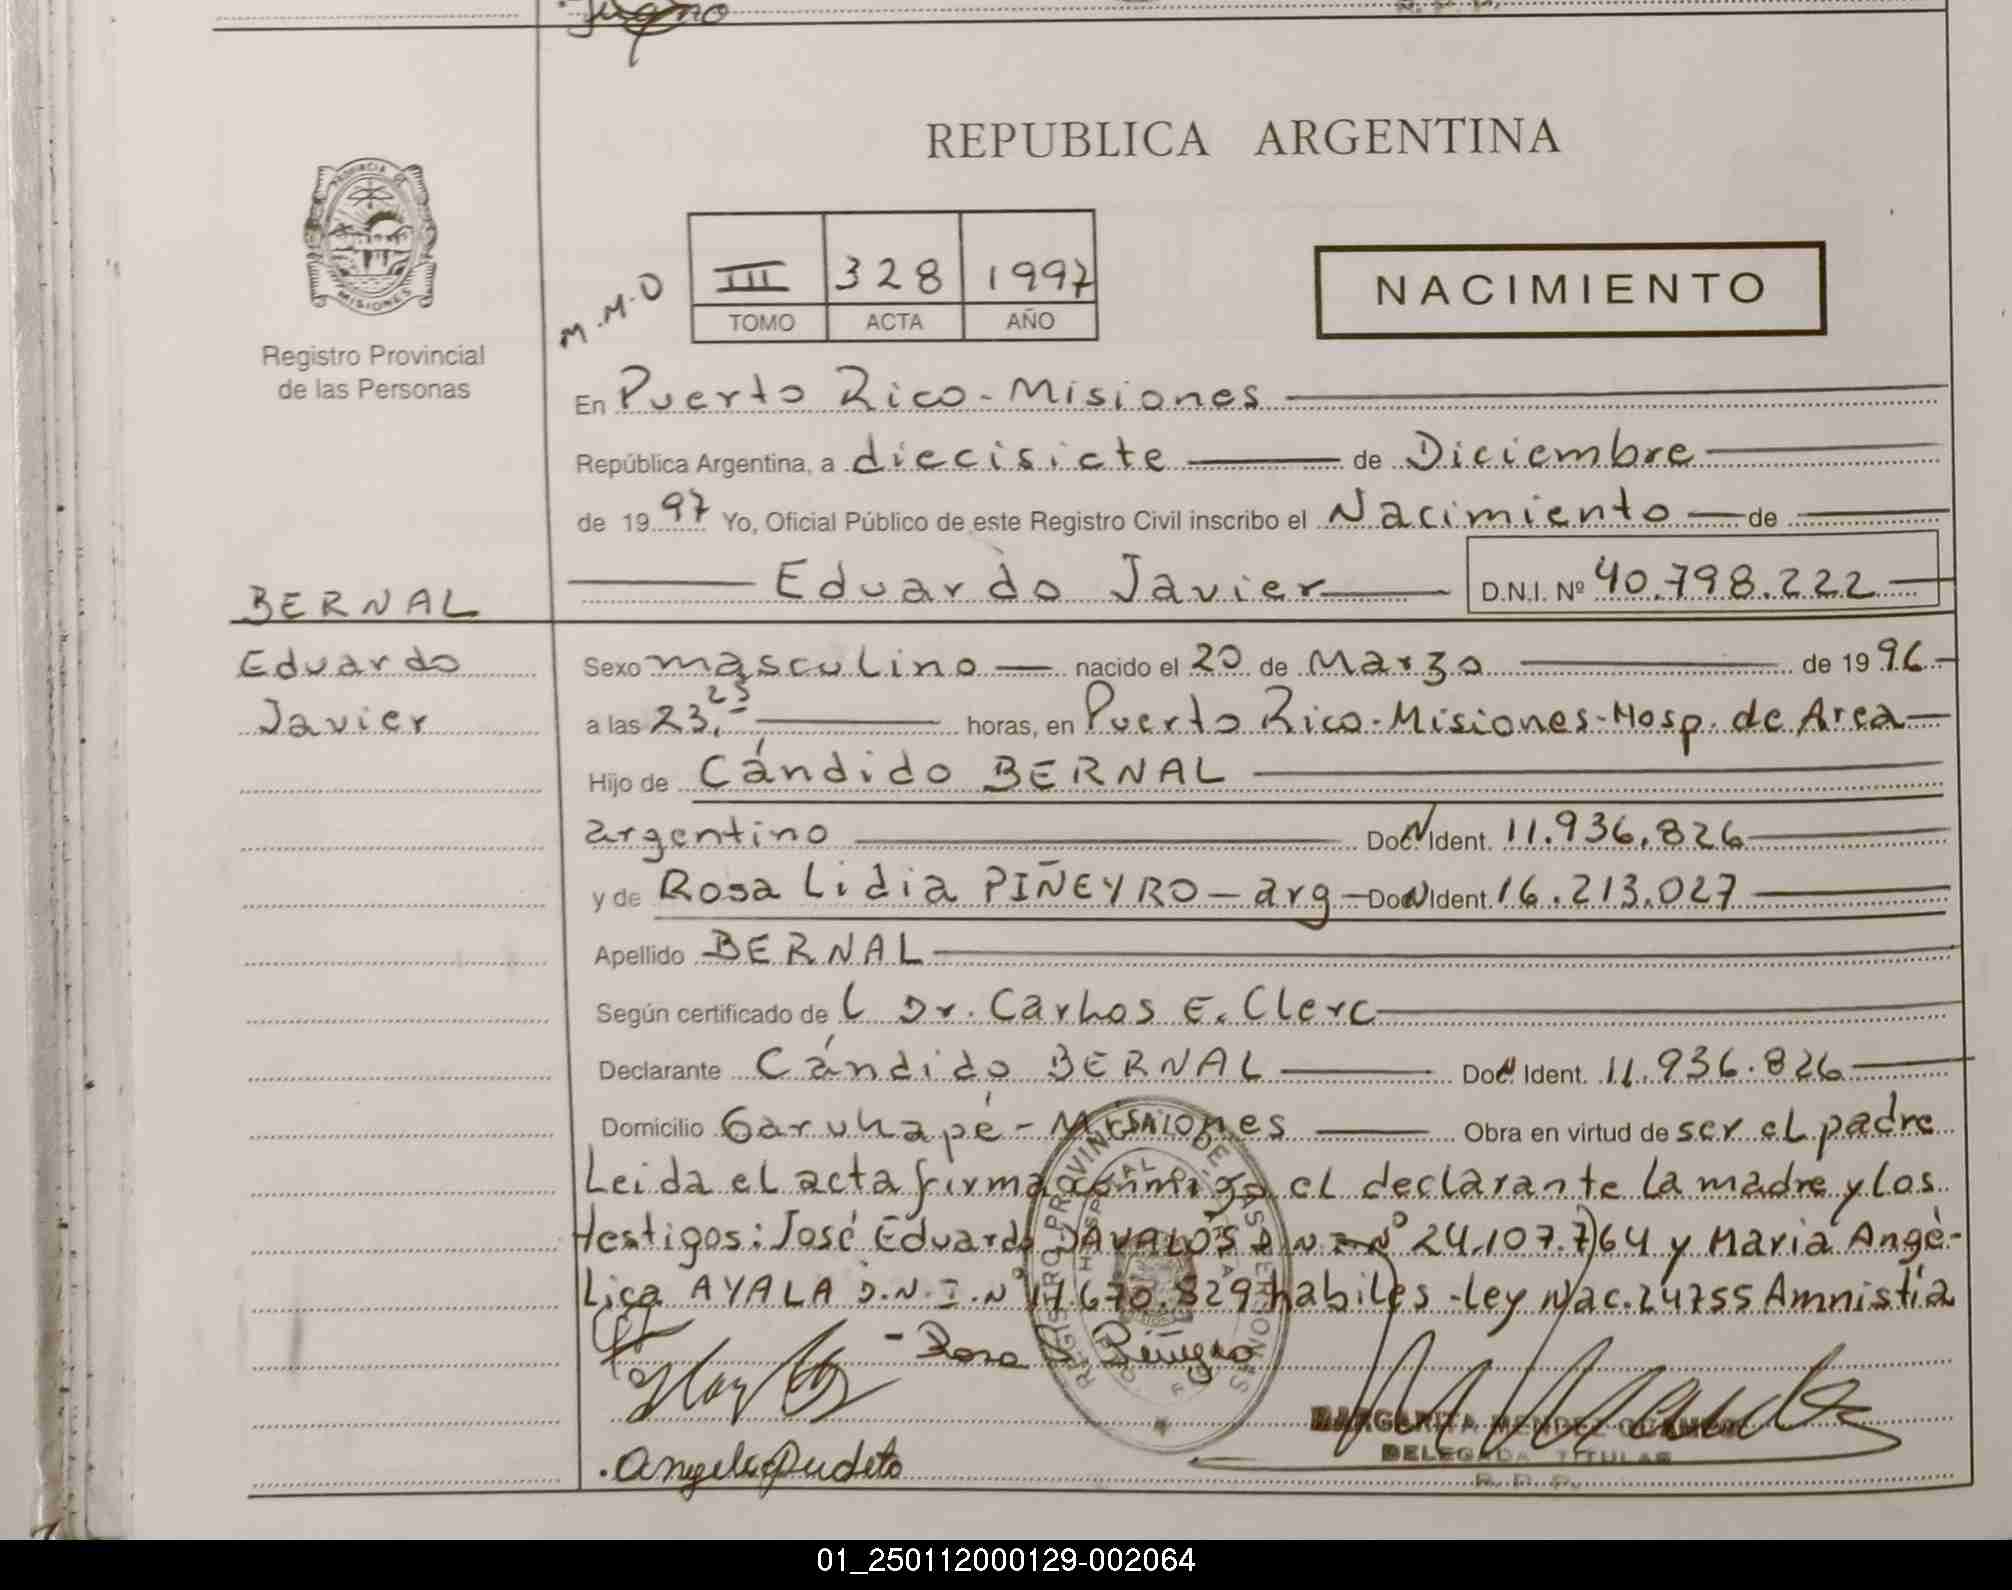 REPUBLICA ARGENTINA
PROVINCIA DE
MISIONES
Registro Provincial
de las Personas
M.M.O
III 328 1997
TOMO ACTA AÑO
NACIMIENTO
En Puerto Rico - Misiones
República Argentina, a diecisiete de Diciembre
de 1997 Yo, Oficial Público de este Registro Civil inscribo el Nacimiento de
Eduardo Javier D.N.I. Nº 40.798.222
BERNAL
Eduardo
Javier
Sexo masculino nacido el 20 de Marzo de 1996
a las 23,25 horas, en Puerto Rico-Misiones-Hosp. de Area
Hijo de Cándido BERNAL
argentino Doc.N Ident. 11.936.826
y de Rosa Lidia PIÑEYRO - arg - Doc.N Ident. 16.213.027
Apellido BERNAL
Según certificado de L Dr. Carlos E. Clerc
Declarante Cándido BERNAL Doc. Ident. 11.936.826
Domicilio Garuhapé - Misiones Obra en virtud de ser el padre
Leida el acta firma conmigo el declarante la madre y los
testigos: José Eduardo DAVALOS D N I Nº 24.107.764 y Maria Angé-
lica AYALA D.N.I.Nº 17.670.829 habiles - ley Nac. 24755 Amnistía
Rosa Piñeyro
MARGARITA MENDEZ
DELEGADA TITULAR
R. P. P.
01_250112000129-002064